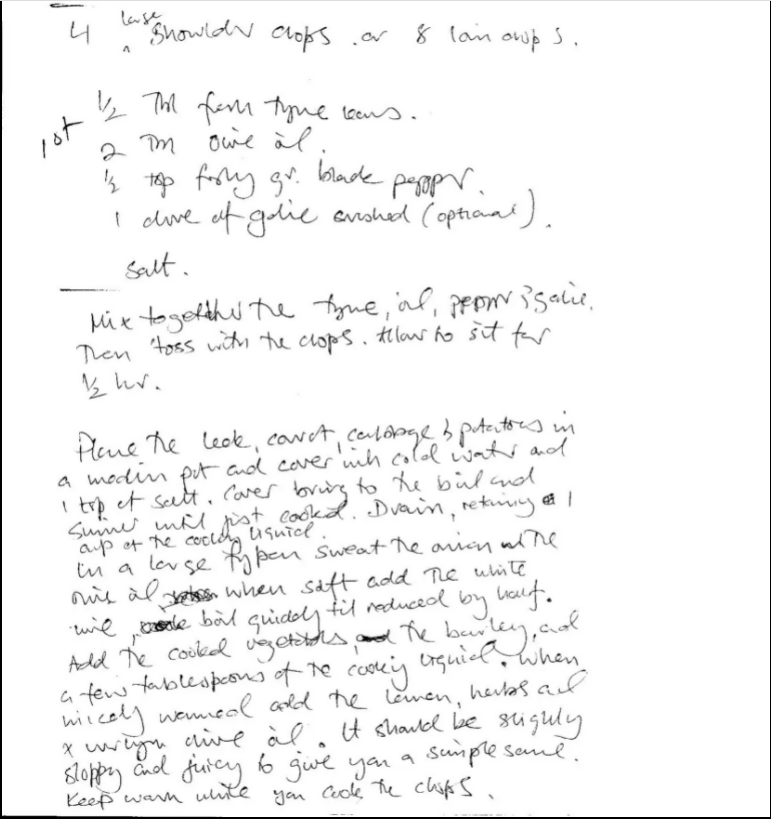 4 large shoulder chops . or 8 loin chops.
1/2 Tbl fresh tyme leaves.
1st
2 Tbl Olive oil.
1/2 tsp freshly gr. black pepper.
1 clove of garlic crushed (optional).
salt.
Mix together the tyme, oil, pepper & garlic.
Then toss with the chops. Allow to sit for
1/2 hr.
Place the leek, carrot, cabbage & potatoes in
a medium pot and cover with cold water and
1 tsp of salt. Cover bring to the boil and
simmer until just cooked. Drain, retaining 1
cup of the cooking liquid.
In a large frypan sweat the onion in the
olive oil when soft add the white
wine, boil quickly til reduced by half.
Add the cooked vegetables, the barley, and
a few tablespoons of the cooking liquid. When
nicely warmed add the lemon, herbs and
x virgin olive oil. It should be slightly
sloppy and juicy to give you a simple sauce.
Keep warm while you cook the chops.